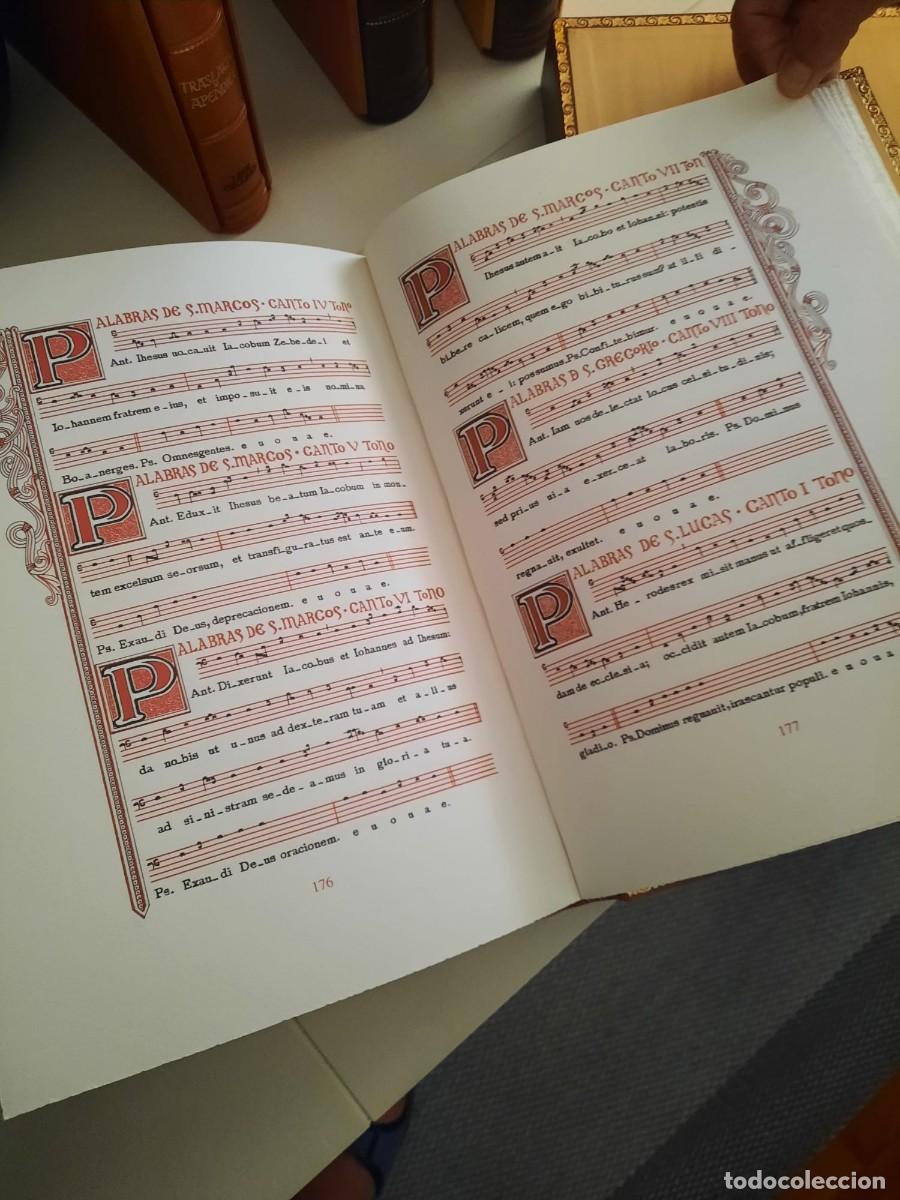 TRASLA
APENDI
PALABRAS DE S. MARCOS · CANTO IV TONO
Ant. Ihesus uo_ca_uit Ia_cobum Ze_be_de_i et
Io_hannem fratrem e_ius, et impo_su_it e_is no_mi_na
Bo_a_nerges. Ps. Omnesgentes. e u o u a e.
PALABRAS DE S. MARCOS · CANTO V TONO
Ant. Edux_it Ihesus be_a_tum Ia_cobum in mon_
tem excelsum se_orsum, et transfi_gu_ra_tus est an_te e_um.
Ps. Exau_di De_us, deprecacionem. e u o u a e.
PALABRAS DE S. MARCOS · CANTO VI TONO
Ant. Di_xerunt Ia_co_bus et Iohannes ad Ihesum:
da no_bis ut u_nus ad dex_te_ram tu_am et a_li_us
ad si_ni_stram se_de_a_mus in glo_ri_a tu_a.
Ps. Exau_di De_us oracionem. e u o u a e.
176
PALABRAS DE S. MARCOS · CANTO VII TON
Ihesus autem a_it Ia_co_bo et Iohan_si: potestis
bi_be_re ca_licem, quem e_go bi_bi_tu_rus sum? at il_li di_
xerunt e_i: possumus. Ps. Confi_te bimur. e u o u a e.
PALABRAS D S. GREGORIO · CANTO VIII TONO
Ant. Iam nos de_lec_tat lo_cus cel_si_tu_di_nis;
sed pri_us ui_a e_xer_ce_at la_bo_ris. Ps. Do_mi_nus
regna_uit, exultet. e u o u a e.
PALABRAS DE S. LUCAS · CANTO I TONO
Ant. He_rodes rex mi_sit manus ut af_fligeret quos_
dam de ec_cle_si_a; oc_ci_dit autem Ia_cobum, fratrem Iohannis,
gladi_o. Ps. Dominus regnauit, irascantur populi. e u o u a
177
todocoleccion